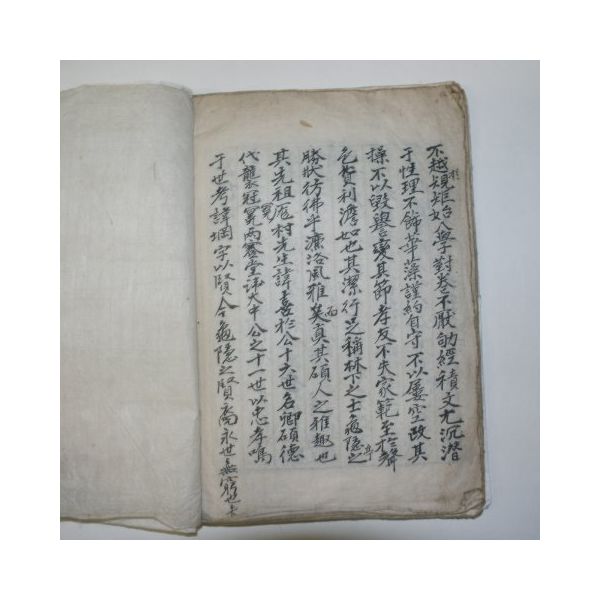 不越規矩始入學對卷不厭劬經積文尤沉潛
于性理不飾華藻謹約自守不以屢空改其
操不以毀譽變其節孝友不失家範至於聲
色貨利澹如也其潔行足稱林下之士龜隱之
勝狀彷佛乎濂洛風雅矣真其碩人之雅趣也
其先祖 村先生諱 於公十六世名卿碩德
代襲冠冕兩 堂諱大中公之十一世以忠孝鳴
于世考諱 字以賢今龜隱之賢裔永世無窮也